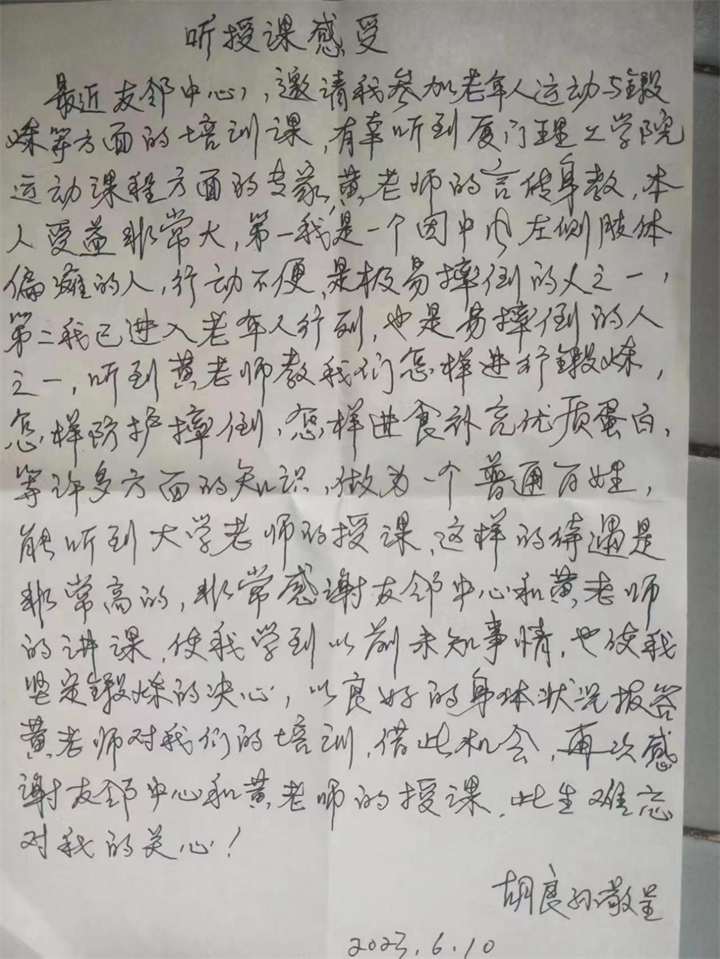 听授课感受
最近友邻中心，邀请我参加老年人运动与锻
炼等方面的培训课，有幸听到厦门理工学院
运动课程方面的专家，黄老师的言传身教，本
人受益非常大，第一我是一个因中风左侧肢体
偏瘫的人，行动不便，是极易摔倒的人之一，
第二我已进入老年人行列，也是易摔倒的人
之一，听到黄老师教我们怎样进行锻炼，
怎样防护摔倒，怎样进食补充优质蛋白，
等许多方面的知识，做为一个普通百姓，
能听到大学老师的授课，这样的待遇是
非常高的，非常感谢友邻中心和黄老师
的讲课，使我学到以前未知事情，也使我
坚定锻炼的决心，以良好的身体状况报答
黄老师对我们的培训，借此机会，再次感
谢友邻中心和黄老师的授课，此生难忘
对我的关心！
胡良敬呈
2023.6.10